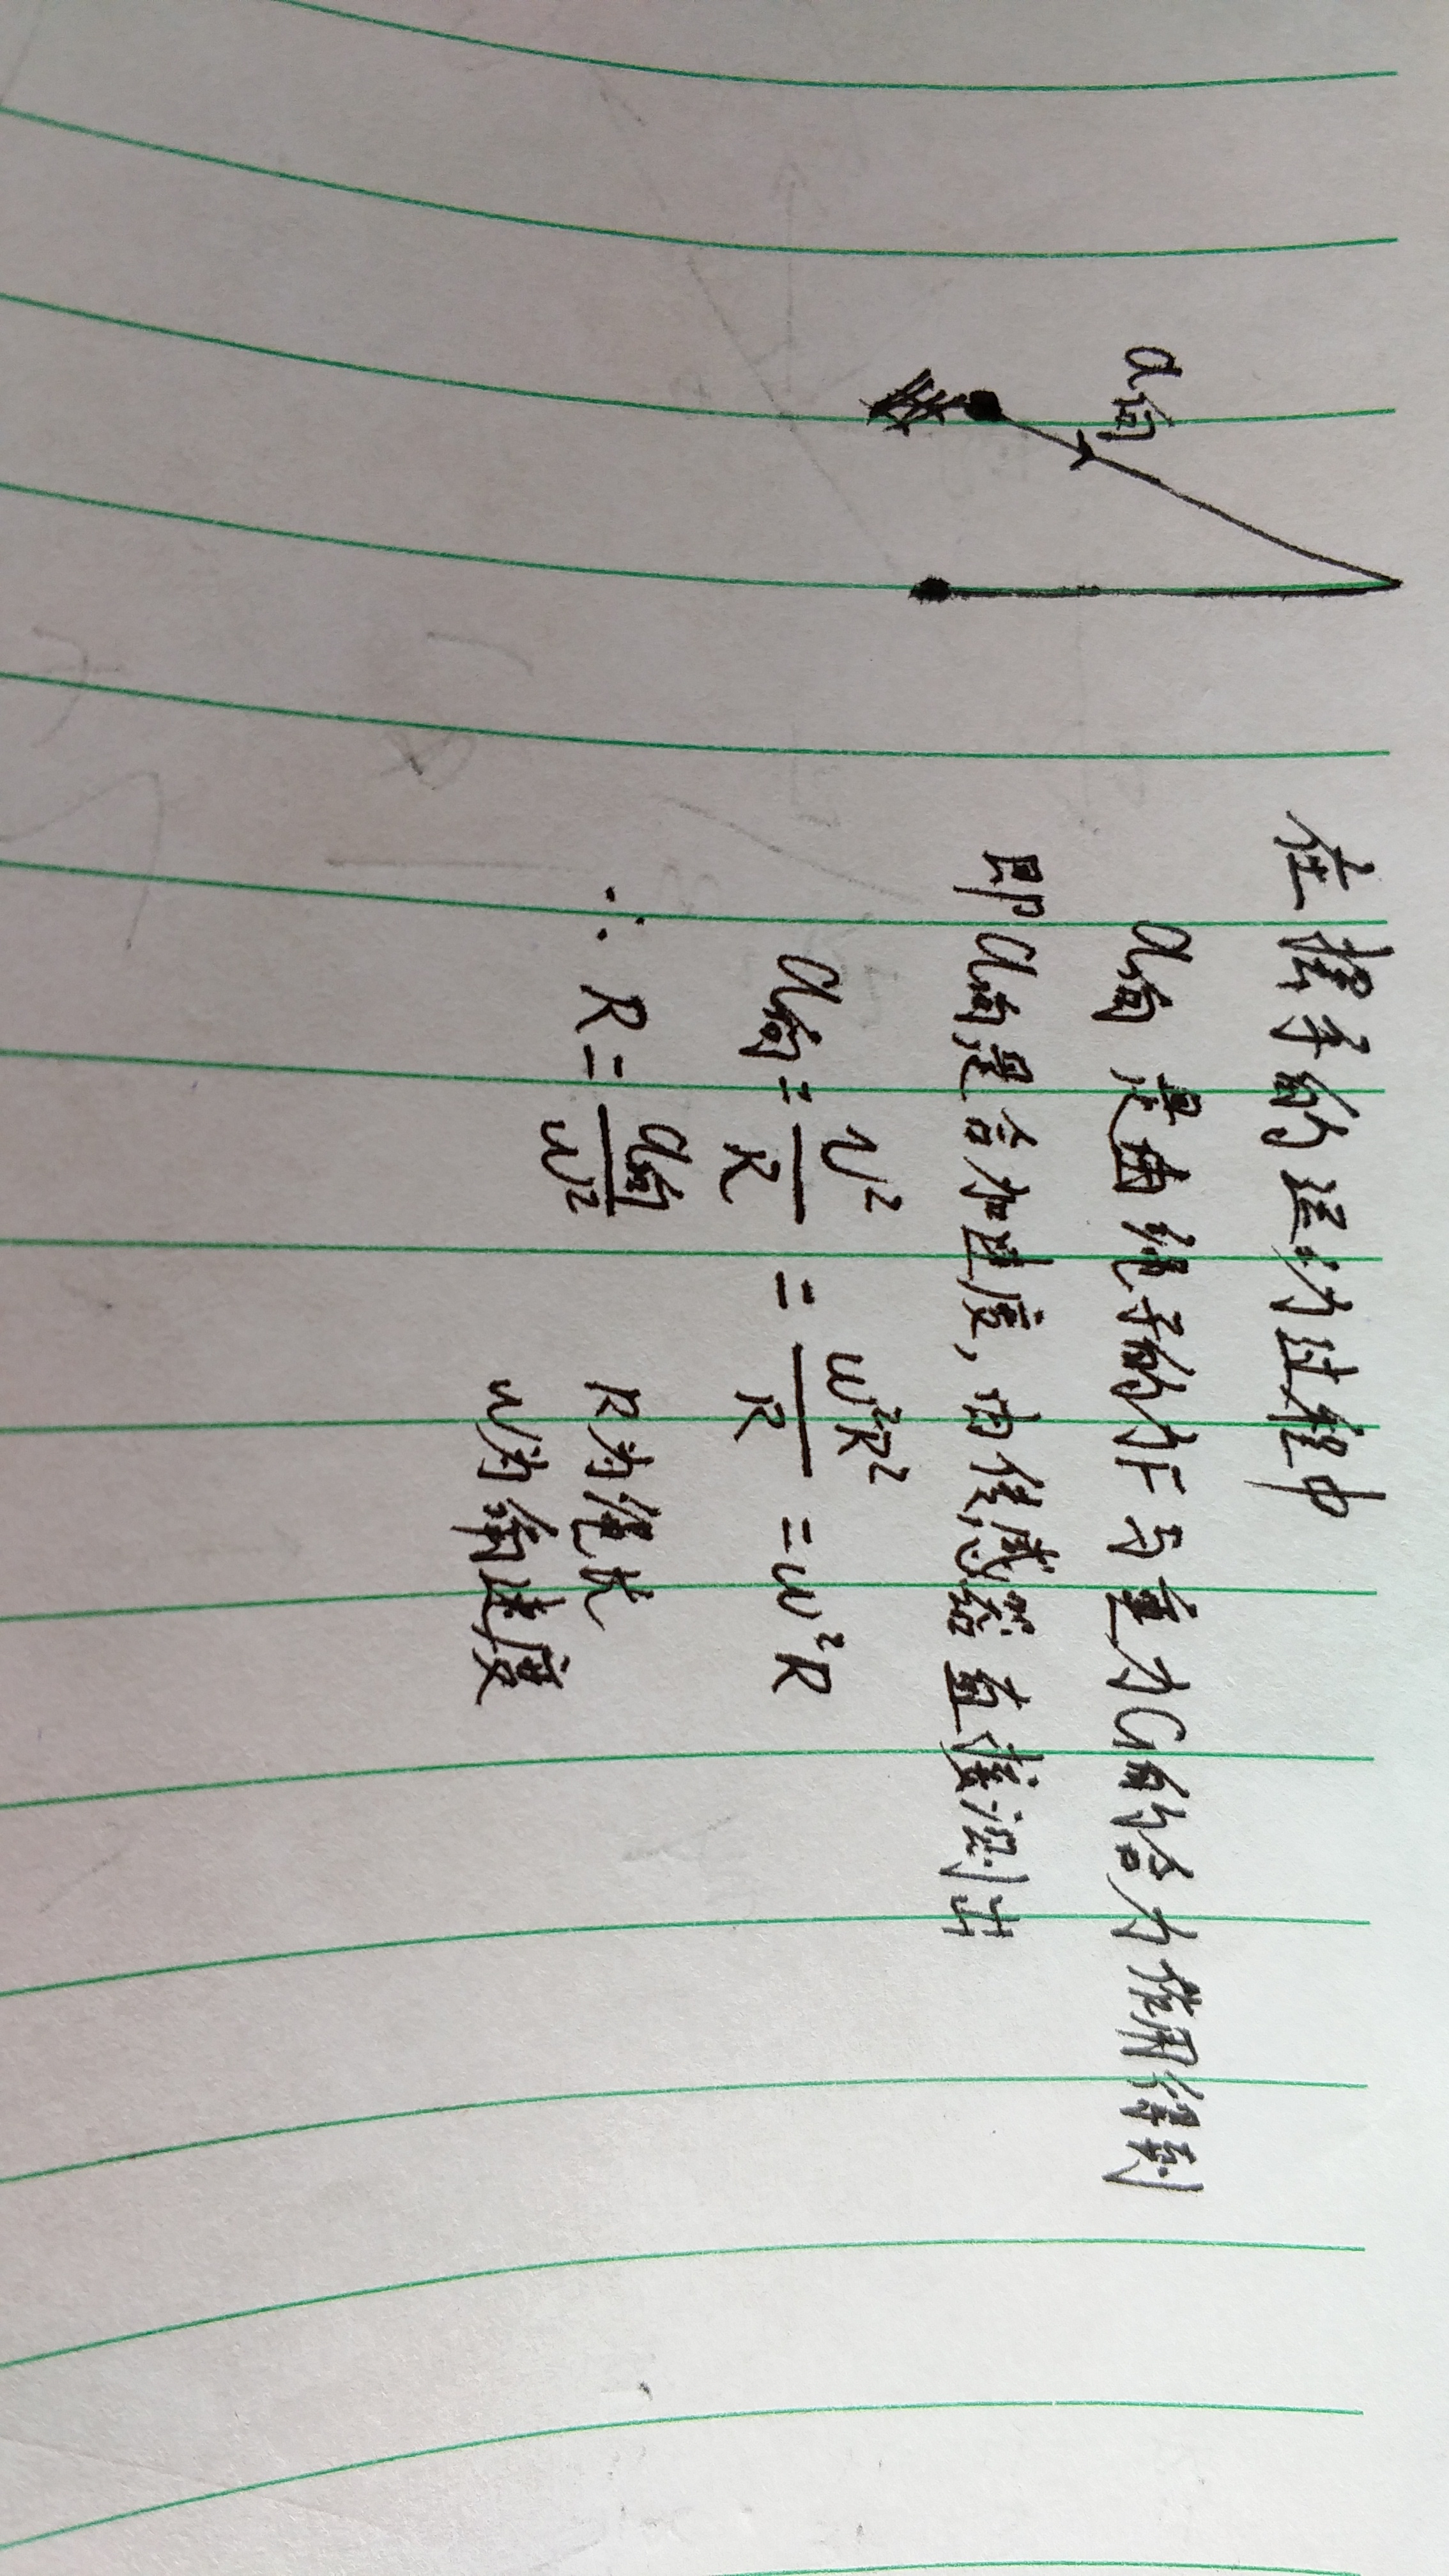 a向
在摆子的运动过程中
a向 是由绳子的力F与重力G的合力作用得到
即a向是合加速度,由传感器直接测出
a向 = v²/R = w²R²/R = w²R
∴ R = a向/w²
R为绳长
w为角速度